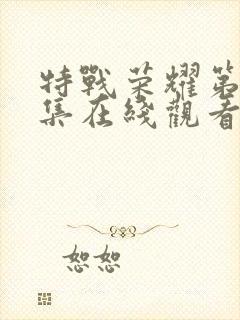 特戰荣耀第
集在綫觀看
恕恕